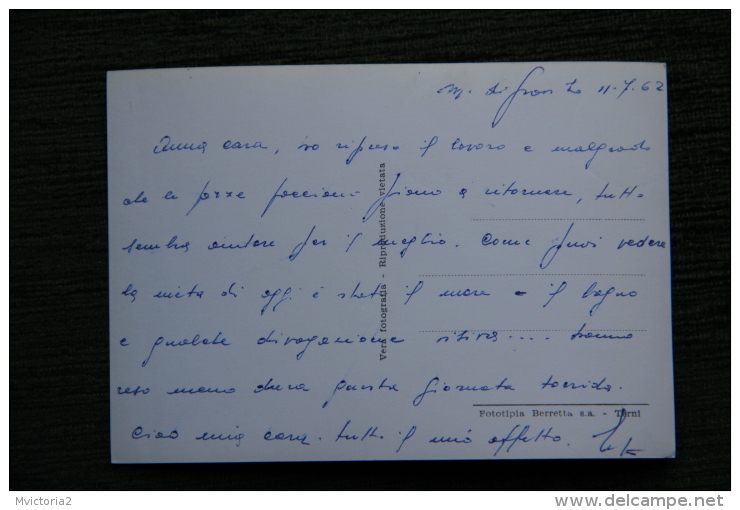 M. di 11.7.62
Anna cara, ho ripreso il lavoro e malgrado
che le forze facciano a ritornare, tutto
sembra andare per il meglio. Come puoi vedere
la meta di oggi è stata il mare - il bagno
e qualche divagazione .... hanno
reso meno dura questa giornata torrida.
Ciao mia cara. tutto il mio affetto.
Vera fotografia - Riproduzione vietata
Fototipia Berretta s.a. - Terni
Mvictoria2
http://www.delcampe.net